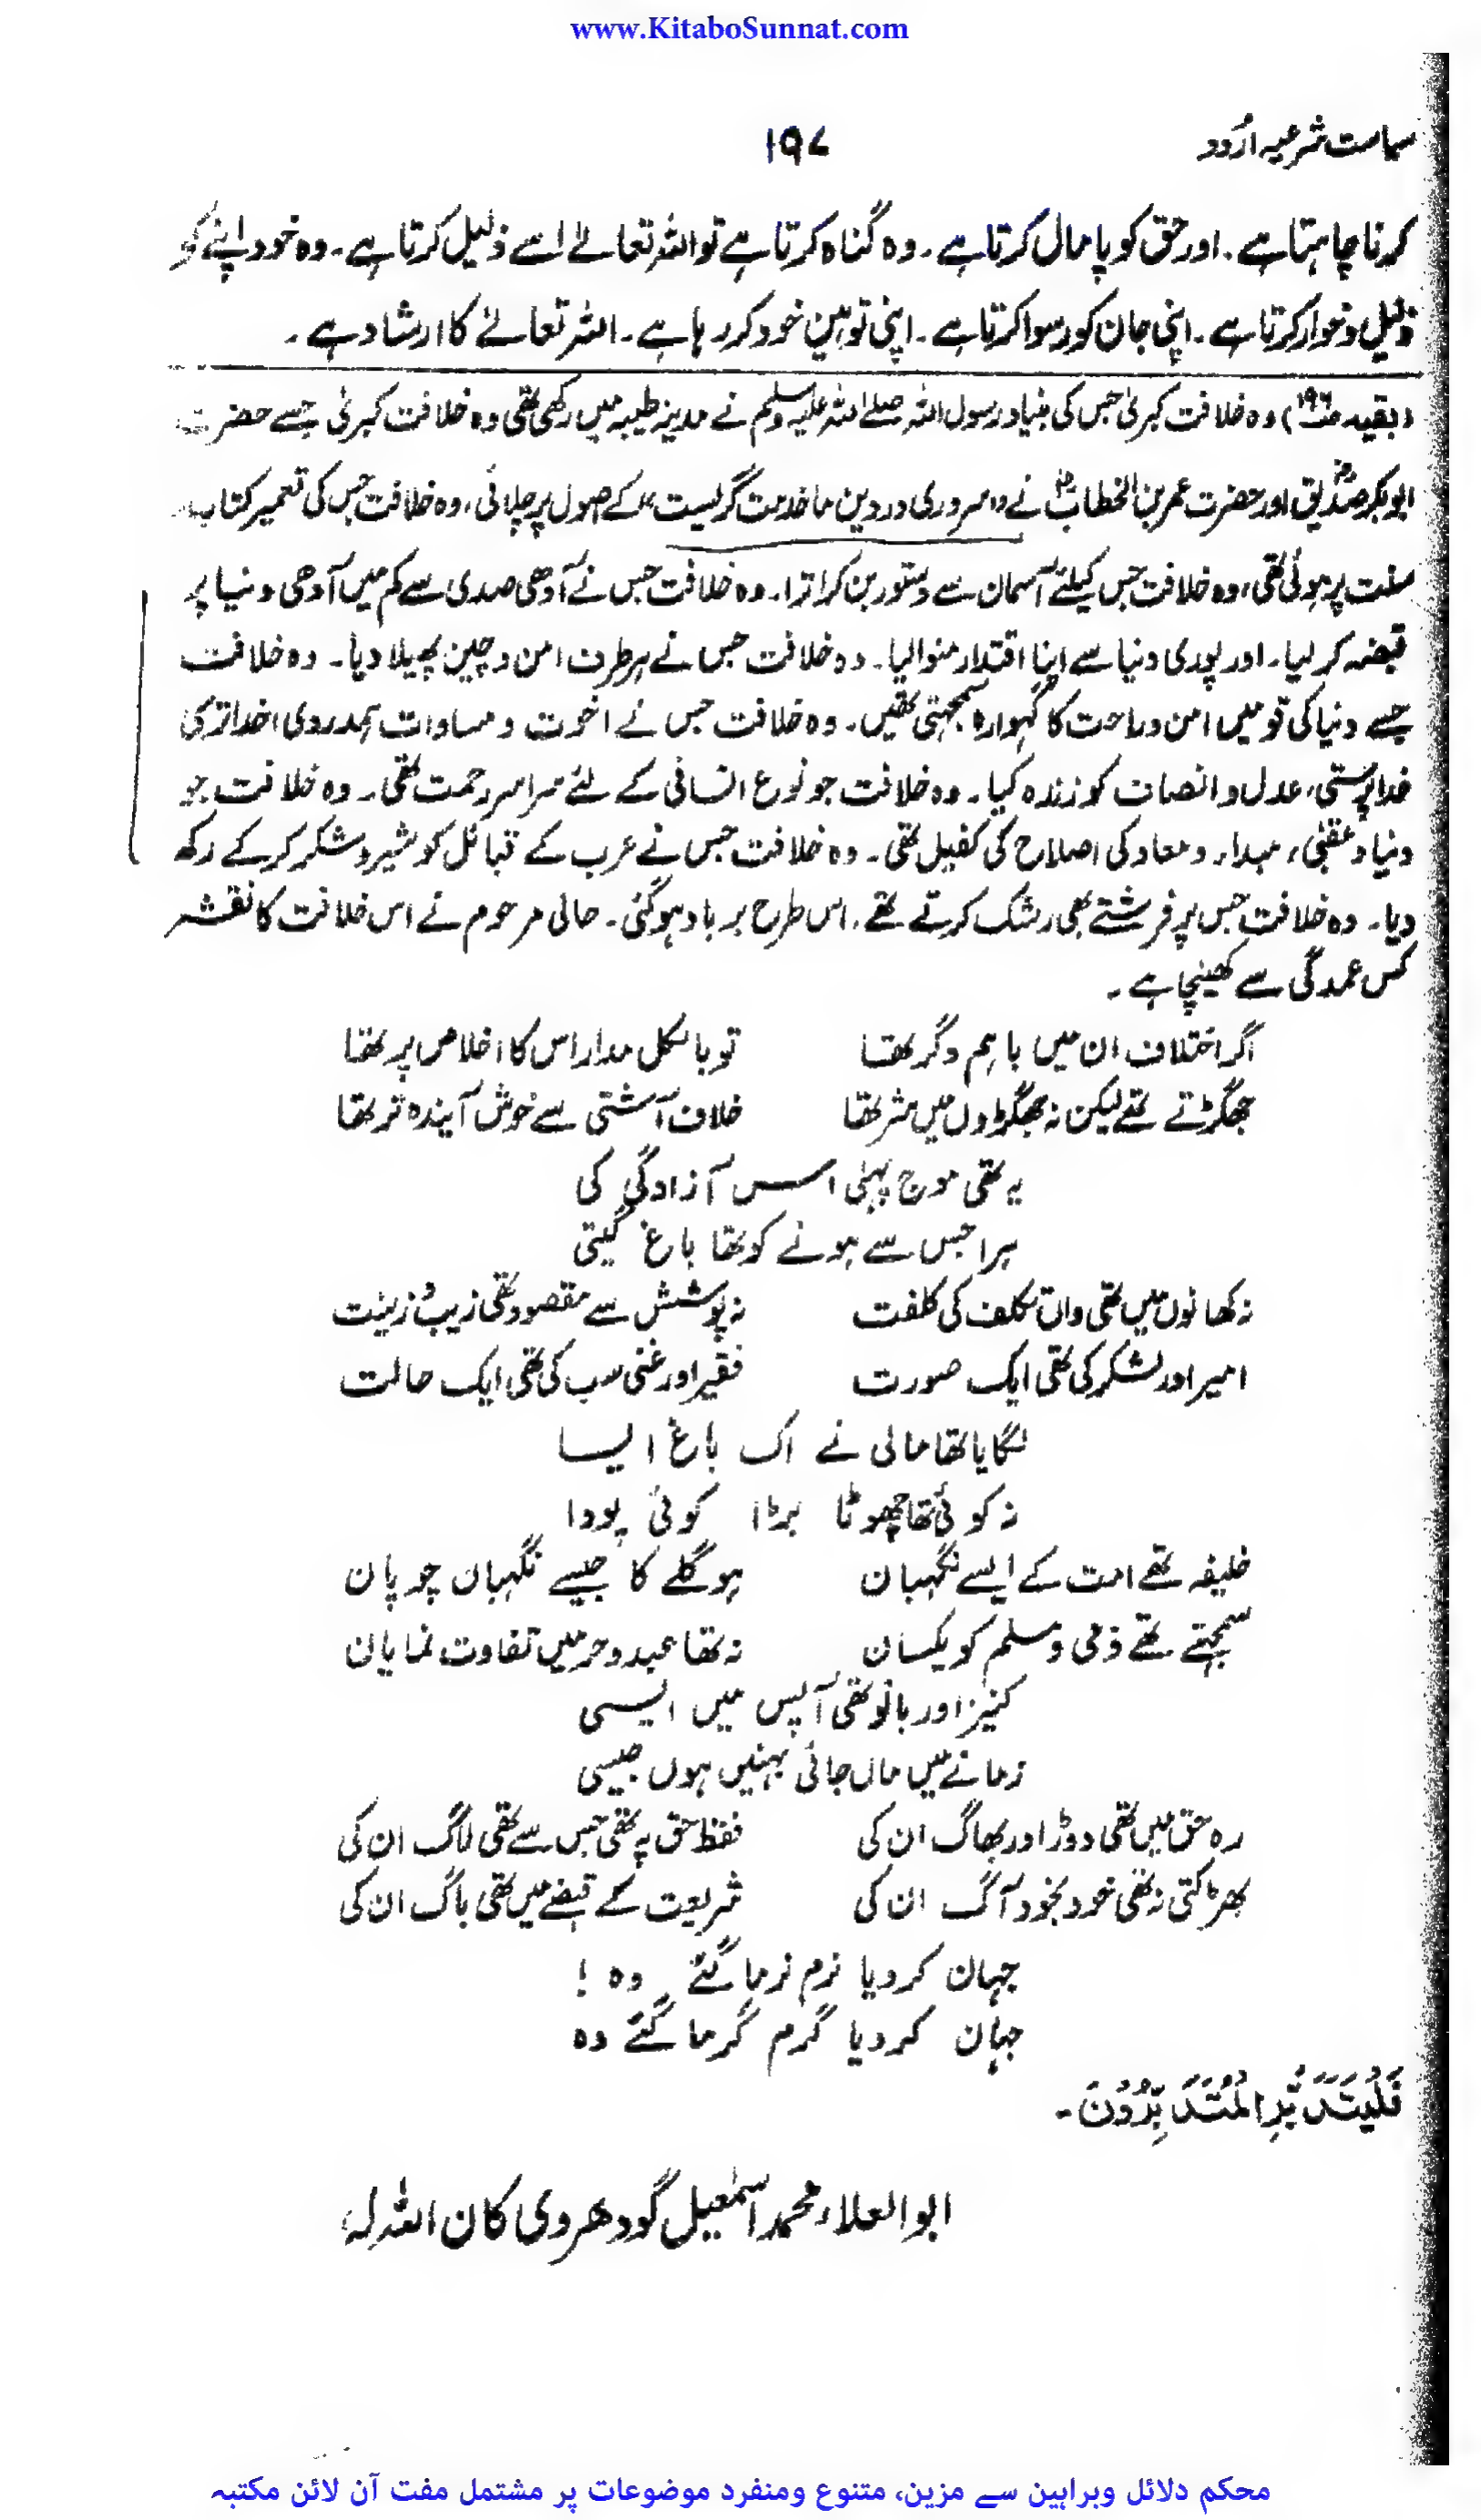 www.KitaboSunnat.com
سیاست شرعیہ اُردو ۱۹۷
کرنا چاہتا ہے۔ اور حق کو پامال کرتا ہے۔ وہ گناہ کرتا ہے تو اللہ تعالےٰ اسے ذلیل کرتا ہے۔ وہ خود اپنے کو
ذلیل و خوار کرتا ہے۔ اپنی جان کو رسوا کرتا ہے۔ اپنی توہین خود کر رہا ہے۔ اللہ تعالےٰ کا ارشاد ہے۔
(بقیہ صـ۱۹۶) وہ خلافت کبریٰ جس کی بنیاد رسول اللہ صلے اللہ علیہ وسلم نے مدینہ طیبہ میں رکھی تھی وہ خلافت کبریٰ جسے حضرت
ابوبکر صدیقؓ اور حضرت عمر بن الخطابؓ نے "سروری در دین ما خدمت گریست" کے اصول پر چلائی، وہ خلافت جس کی تعمیر کتاب و
سنت پر ہوئی تھی، وہ خلافت جس کیلئے آسمان سے دستور بن کر اترا۔ وہ خلافت جس نے آدھی صدی سے کم میں آدھی دنیا پر
قبضہ کر لیا۔ اور پوری دنیا سے اپنا اقتدار منوالیا۔ وہ خلافت جس نے ہر طرف امن و چین پھیلا دیا۔ وہ خلافت
جسے دنیا کی قومیں امن و راحت کا گہوارہ سمجھتی تھیں۔ وہ خلافت جس نے اخوت و مساوات ہمدردی اخدا ترسی
خدا پرستی، عدل و انصاف کو زندہ کیا۔ وہ خلافت جو نوع انسانی کے لئے سراسر رحمت تھی۔ وہ خلافت جو
دنیا و عقبیٰ، مبداء و معاد کی اصلاح کی کفیل تھی۔ وہ خلافت جس نے عرب کے قبائل کو شیر و شکر کر کے رکھ
دیا۔ وہ خلافت جس پر فرشتے بھی رشک کرتے تھے، اس طرح برباد ہوگئی۔ حالی مرحوم نے اس خلافت کا نقشہ
کس عمدگی سے کھینچا ہے۔
اگر اختلاف ان میں باہم دگر تھا تو بالکل مدار اس کا اخلاص پر تھا
جھگڑتے تھے لیکن نہ جھگڑوں میں شر تھا خلاف آشتی سے خوش آیندہ تر تھا
یہ تھی موج پہلی اس آزادگی کی
ہرا جس سے ہونے کو تھا باغ گیتی
نہ کھانوں میں تھی واں تکلف کی کلفت نہ پوشش سے مقصود تھی زیب و زینت
امیر اور لشکر کی تھی ایک صورت فقیر اور غنی سب کی تھی ایک حالت
لگایا تھا مالی نے اک باغ ایسا
نہ کوئی تھا چھوٹا بڑا کوئی پودا
خلیفہ تھے امت کے ایسے نگہبان ہو گلے کا جیسے نگہبان چوپان
سمجھتے تھے ذمی و مسلم کو یکسان نہ تھا عبد و حر میں تفاوت نمایان
کنیز اور بانو تھی آپس میں ایسی
زمانے میں ماں جائی بہنیں ہوں جیسی
رہ حق میں تھی دوڑ اور بھاگ ان کی فقط حق پہ تھی جس سے تھی لاگ ان کی
بھڑکتی نہ تھی خود بخود آگ ان کی شریعت کے قبضے میں تھی باگ ان کی
جہان کر دیا نرم نرما گئے وہ!
جہان کر دیا گرم گرما گئے وہ
فَلْیَتَدَبَّرِ الْمُتَدَبِّرُوْنَ۔
ابو العلاء محمد اسمٰعیل گودھروی کان اللہ لہٗ
محکم دلائل وبراہین سے مزین، متنوع ومنفرد موضوعات پر مشتمل مفت آن لائن مکتبہ